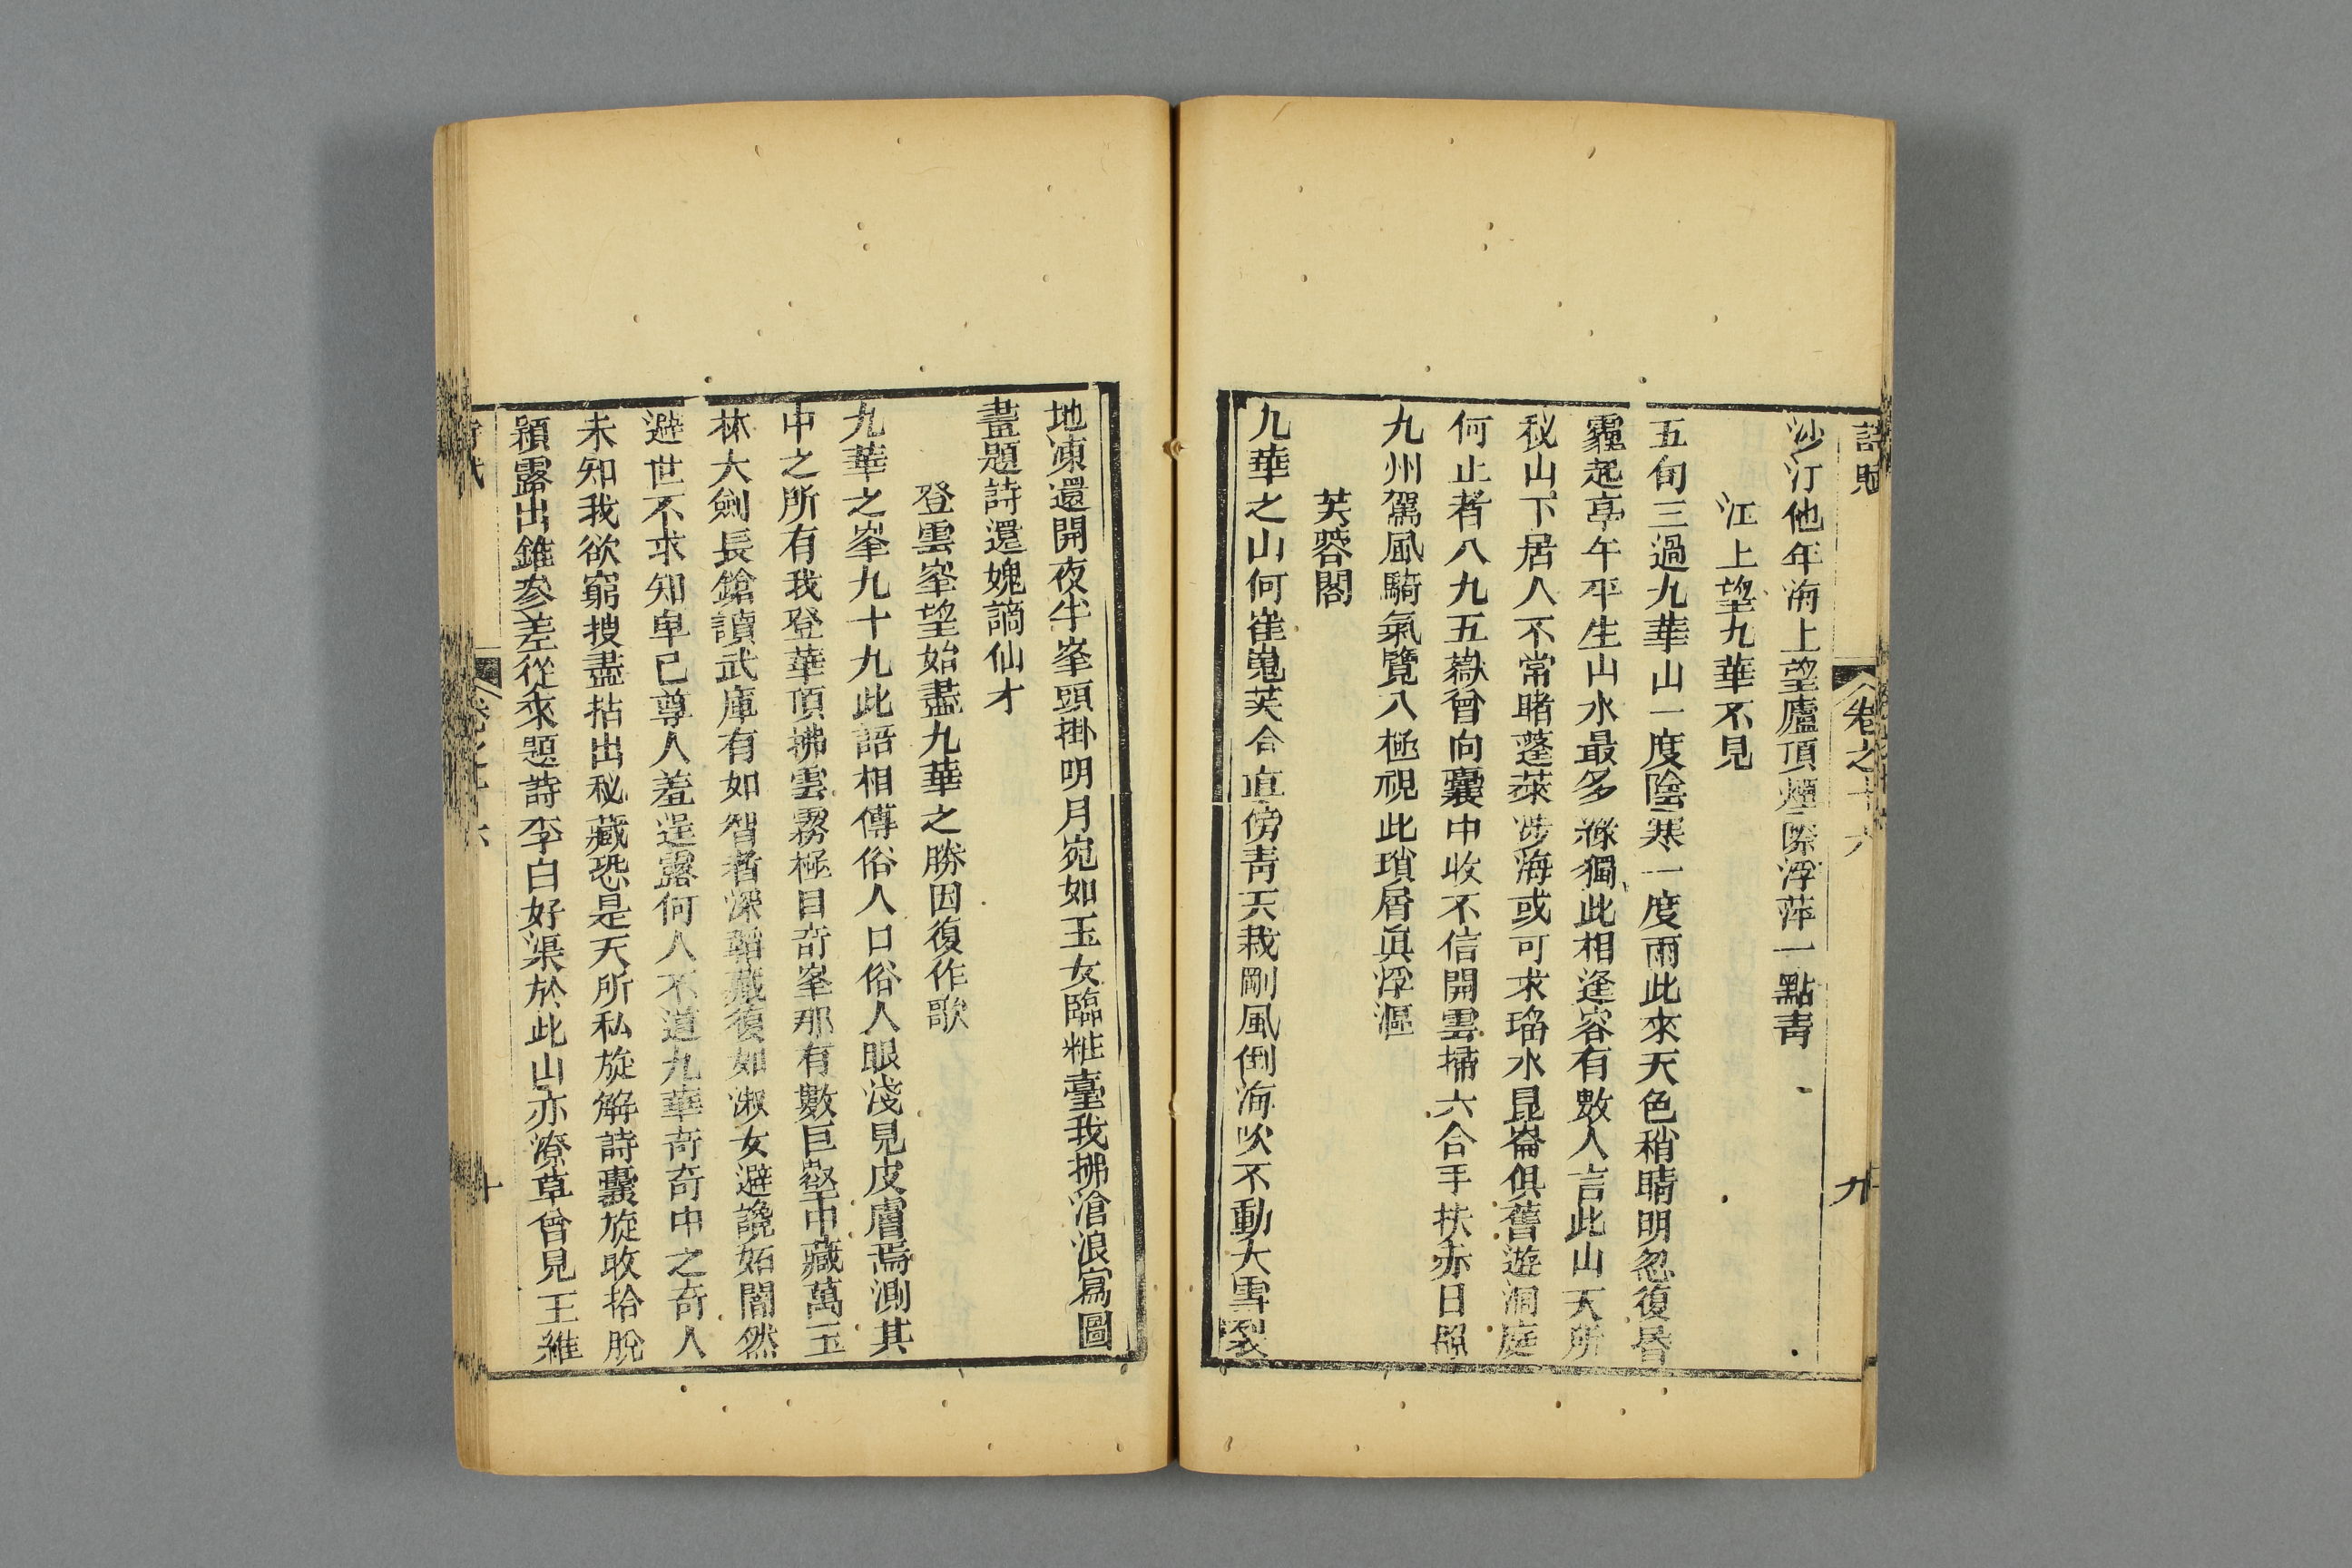 詩賦 卷之十六 九
沙汀他年海上望廬頂煙際浮萍一點青
江上望九華不見
五旬三過九華山一度陰寒一度雨此來天色稍晴明忽復昏
霾起亭午平生山水最多緣獨此相逢容有數人言此山天所
秘山下居人不常睹蓬萊涉海或可求瑤水昆崙俱舊遊洞庭
何止吞八九五嶽曾向囊中收不信開雲掃六合手扶赤日照
九州駕風騎氣覽八極視此瑣屑眞浮漚
芙蓉閣
九華之山何崔嵬芙合直傍青天栽剛風倒海吹不動大雪裂
地凍還開夜半峯頭掛明月宛如玉女臨粧臺我拂滄浪寫圖
畫題詩還媿謫仙才
登雲峯望始盡九華之勝因復作歌
九華之峯九十九此語相傳俗人口俗人眼淺見皮膚焉測其
中之所有我登華頂拂雲霧極目奇峯那有數巨壑中藏萬玉
林大劍長鎗讀武庫有如智者深韜藏復如淑女避讒妬闇然
避世不求知卑己尊人羞逞露何人不道九華奇奇中之奇人
未知我欲窮搜盡拈出秘藏恐是天所私旋解詩囊旋收拾脫
穎露出錐參差從來題詩李白好渠於此山亦潦草曾見王維
卷之十六 十